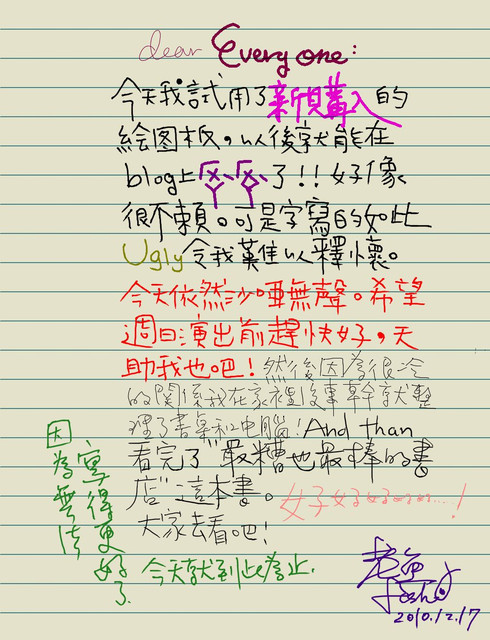 dear Everyone:
今天我試用了新購入的
繪图板，以後就能在
blog上ㄒㄒ了!!好像
很不賴。可是字寫的如此
Ugly令我難以釋懷。
今天依然沙啞無聲。希望
週日演出前趕快好，天
助我也吧！然後因為很冷
的關係我在家裡沒事幹就整
理了書桌和电腦！And than
看完了"最糟也最棒的書
店"這本書。
女子好好好好....！
大家去看吧！
因為無法
寫得更好了
今天就到此為止.
Josh
2010.12.17